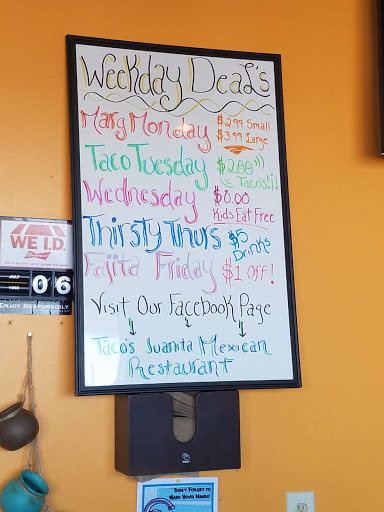 Weekday Deal's
Marg Monday $2.99 Small
$3.99 Large
Taco Tuesday $2.00
Tacos!!
Wednesday $0.00
Kids Eat Free
Thirsty Thurs $5
Drinks
Fajita Friday $1 Off!
Visit Our Facebook Page
Taco's Juanita Mexican
Restaurant
WE I.D.
JULY
06
ENJOY RESPONSIBLY
DON'T FORGET TO
WASH YOUR HANDS!